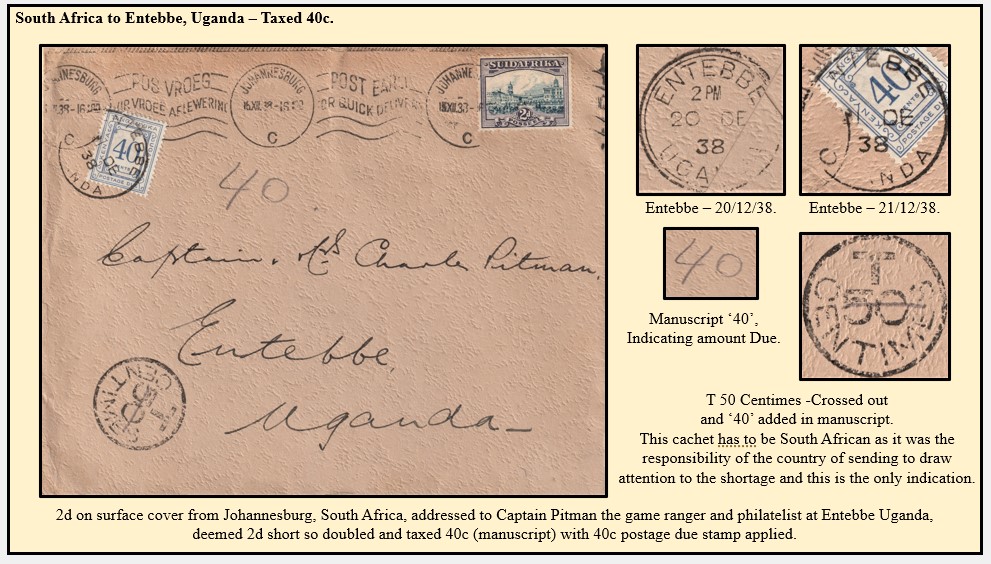 South Africa to Entebbe, Uganda – Taxed 40c.
JOHANNESBURG
POS VROEG
POST EARLY
OR QUICK DELIVERY
C
C
C
SUIDAFRIKA
2d
40
40
Captain. Mrs Charles Pitman,
Entebbe,
Uganda –
T
50
CENTIMES
ENTEBBE
2 PM
20 DE
38
UGA
EBBE
40
CENTS
DE
38
NDA
POSTAGE D
Entebbe – 20/12/38.
Entebbe – 21/12/38.
40
Manuscript ‘40’,
Indicating amount Due.
T
50
CENTIMES
T 50 Centimes -Crossed out
and ‘40’ added in manuscript.
This cachet has to be South African as it was the
responsibility of the country of sending to draw
attention to the shortage and this is the only indication.
2d on surface cover from Johannesburg, South Africa, addressed to Captain Pitman the game ranger and philatelist at Entebbe Uganda,
deemed 2d short so doubled and taxed 40c (manuscript) with 40c postage due stamp applied.